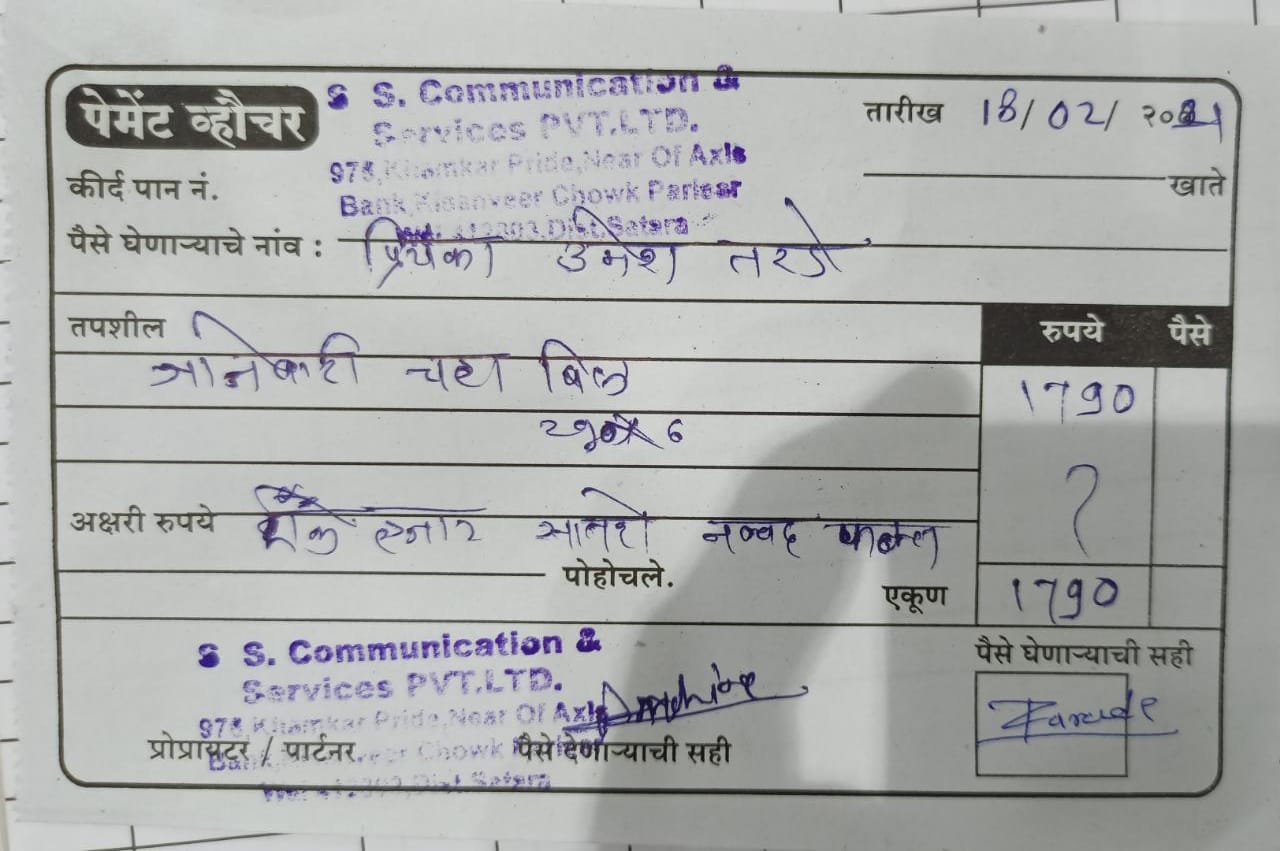 पेमेंट व्हौचर
S S. Communication &
Services PVT.LTD.
975, Khamkar Pride, Near Of Axis
Bank, Kisanveer Chowk
412803, Dist. Satara
तारीख 18/02/
कीर्द पान नं.
खाते
पैसे घेणाऱ्याचे नांव : प्रियंका उमेश तरडे
तपशील
रुपये पैसे
जानेवारी चहा बिल 1790
अक्षरी रुपये एक हजार सातशे नव्वद फक्त
पोहोचले.
एकूण 1790
S S. Communication &
Services PVT.LTD.
975, Khamkar Pride, Near Of Axis
Chowk
Dist. Satara
पैसे घेणाऱ्याची सही
प्रोप्रायटर / पार्टनर. पैसे देणाऱ्याची सही